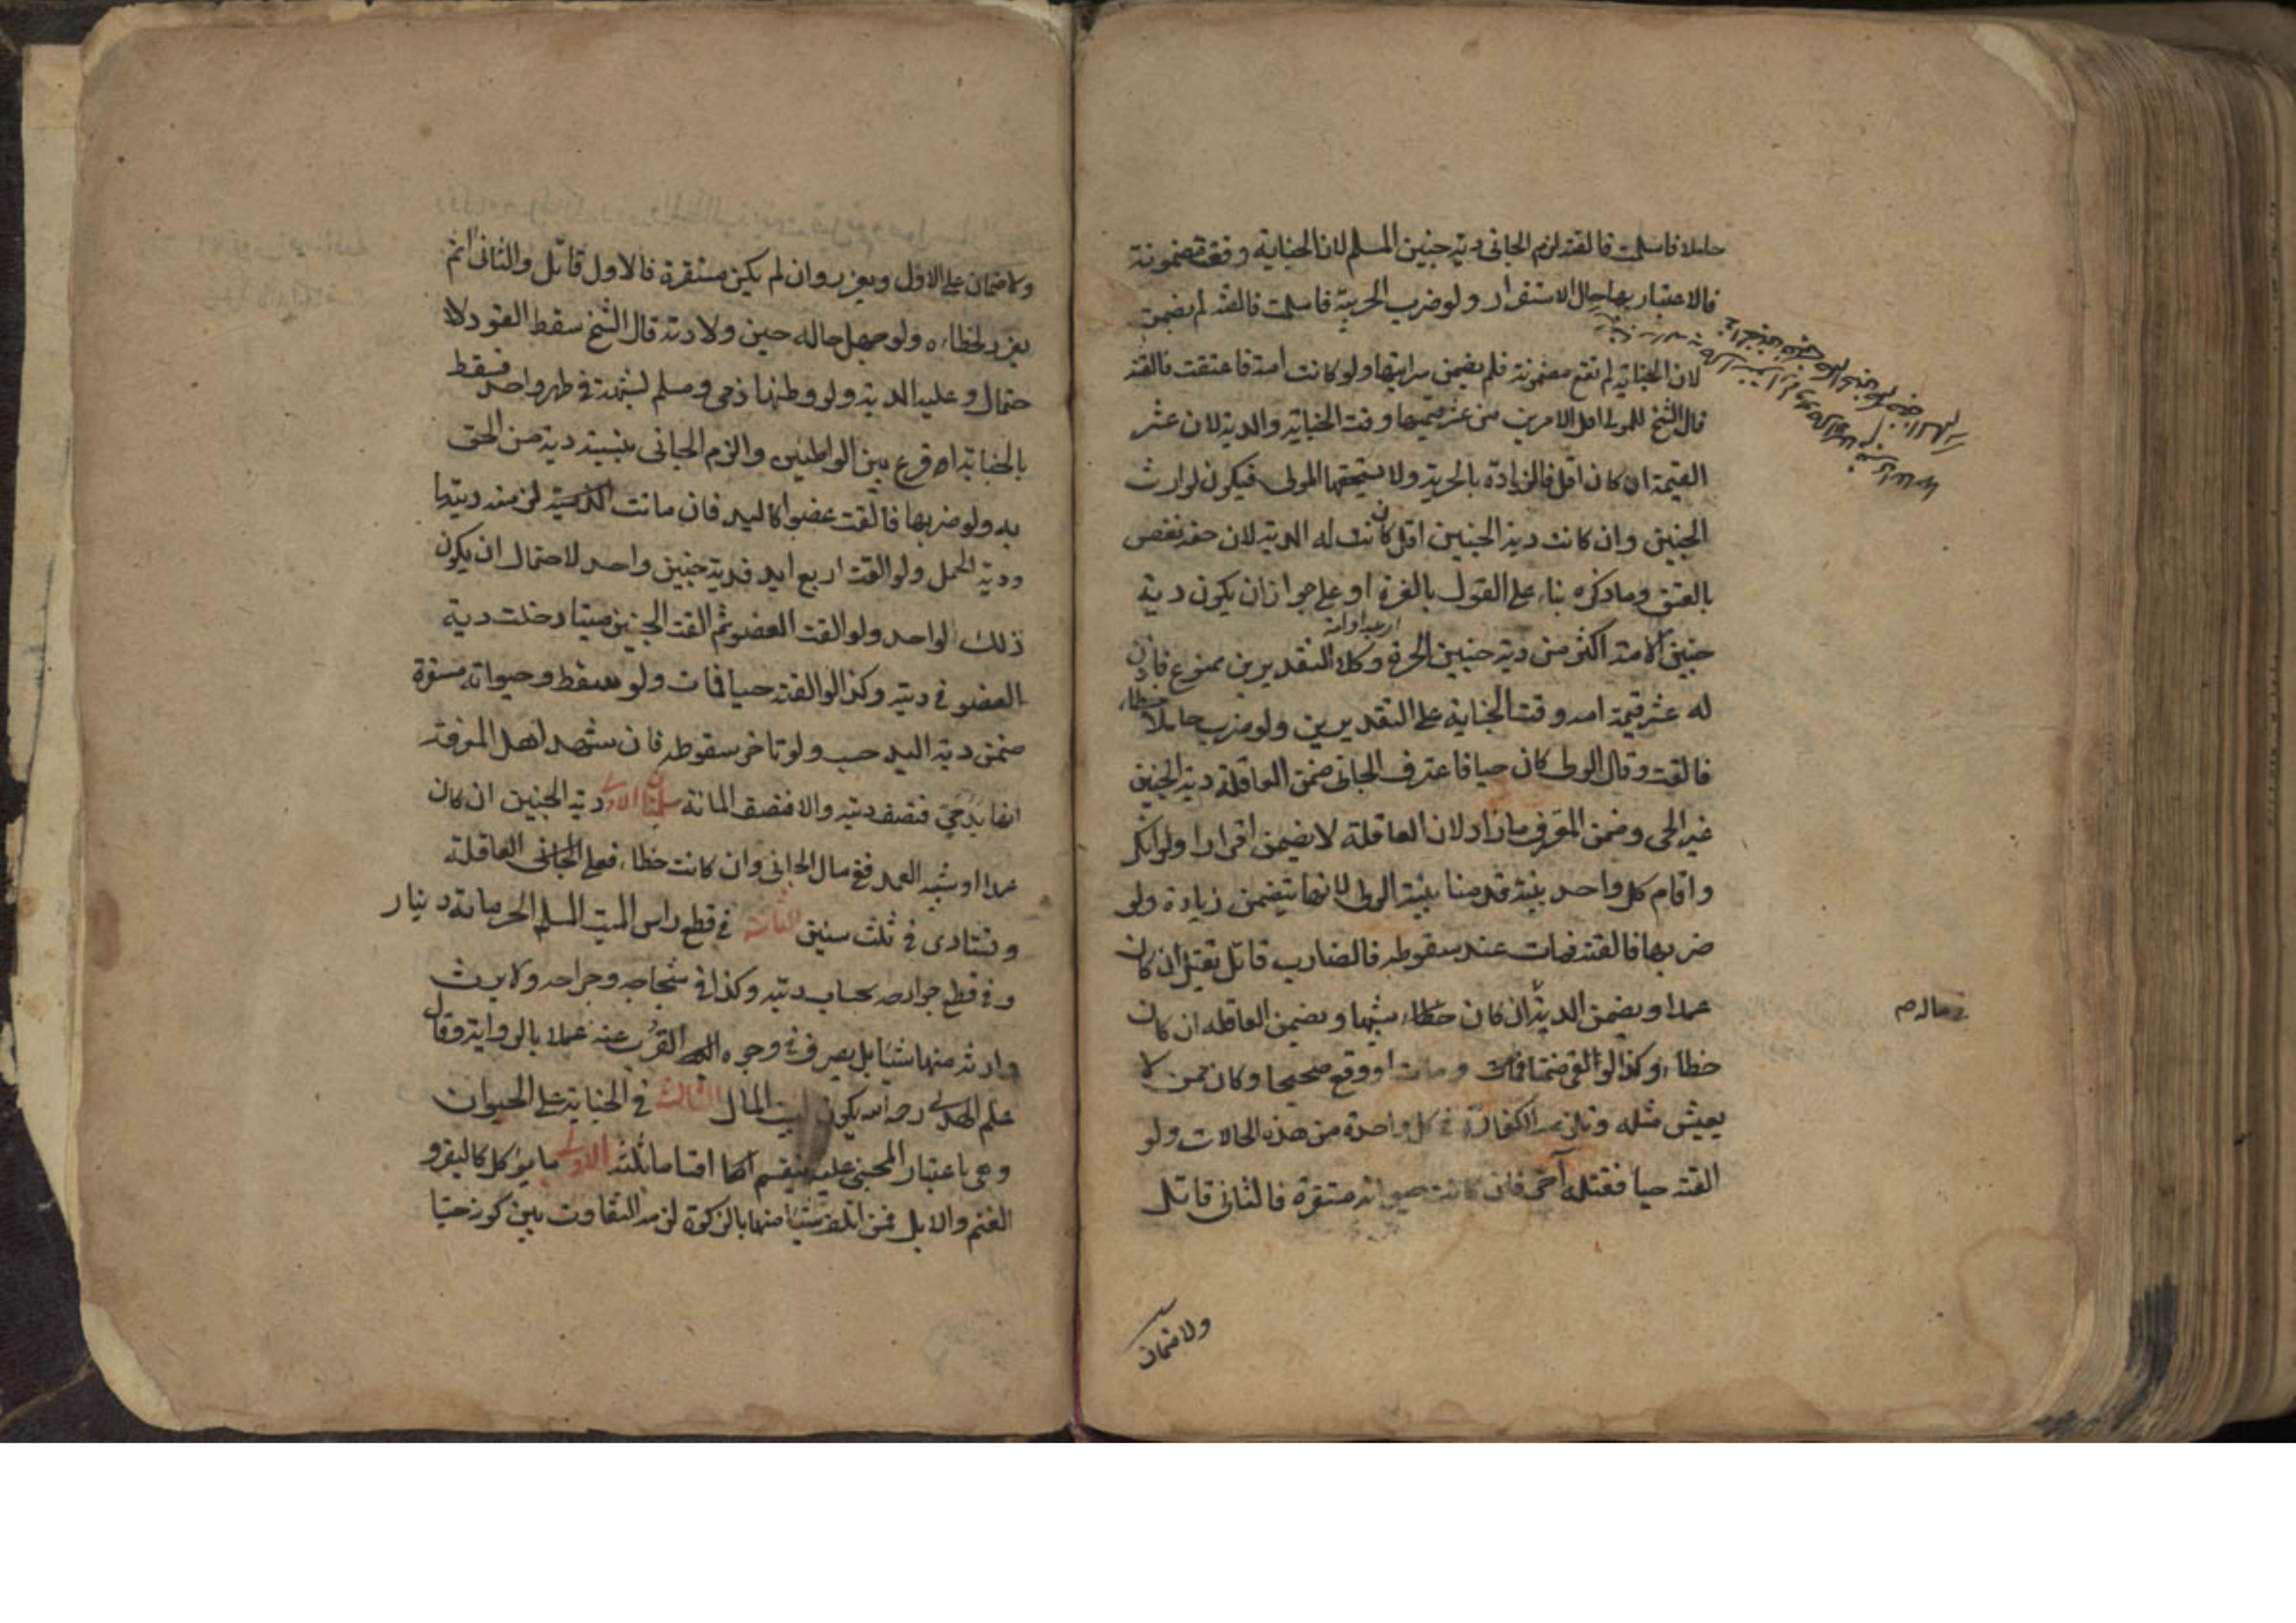 حاملا فاسلمت فالقته لزم الجانى دية جنين المسلم لان الجناية وقعت مضمونة
فالاعتبار بها حال الاستقرار ولو ضرب الحربية فاسلمت فالقته لم يضمن
لان الجناية لم تقع مضمونة فلم يضمن سرايتها ولو كانت امة فاعتقت فالقته
قال الشيخ للمولى اقل الامرين من عشر قيمتها وقت الجناية والدية لان عشر
القيمة ان كان اقل فالزيادة بالحرية ولا يستحقها المولى فيكون لوارث
الجنين وان كانت دية الجنين اقل كان له الدية لان حقه نقص
بالعتق وما ذكره بناء على القول بالغرة او على جواز ان يكون دية
جنين الامة اكثر من دية جنين الحرة وكلا التقديرين ممنوع فاذن
له عشر قيمة امه وقت الجناية على التقديرين ولو ضرب حاملا خطاء
فالقت وقال الولى كان حيا فاعترف الجانى ضمن العاقلة دية الجنين
غير الحى وضمن المعترف ما زاد لان العاقلة لا يضمن اقرارا ولو انكر
واقام كل واحد بينة قدمنا بينة الولى لانها يتضمن زيادة ولو
ضربها فالقته فمات عند سقوطه فالضارب قاتل يقتل ان كان
عمدا ويضمن الدية ان كان شبيها ويضمن العاقلة ان كان
خطاء وكذا لو القى ضمنا ومات او وقع صحيحا وكان ممن لا
يعيش مثله وتلزمه الكفارة فى كل واحدة من هذه الحالات ولو
القته حيا فقتله آخر فان كانت حيوته مستقرة فالثانى قاتل
فى ماله م
ولا ضمان
ولا ضمان على الاول ويعزر وان لم يكن مستقرة فالاول قاتل والثانى اثم
يعزر لخطائه ولو جهل حاله حين ولادته قال الشيخ سقط القود للا
حتمال وعليه الدية ولو وطئها ذمى ومسلم لشبهة فى طهر واحد فسقط
بالجناية اقرع بين الواطئين والزم الجانى بنسبة دية من الحق
به ولو ضربها فالقت عضوا كاليد فان ماتت لزمه ديتها
ودية الحمل ولو القت اربع ايد فدية جنين واحد لاحتمال ان يكون
ذلك لواحد ولو القت العضو ثم القت الجنين ميتا دخلت دية
العضو فى ديته وكذا لو القته حيا فمات ولو سقط وحيوته مستقرة
ضمن دية اليد حسب ولو تاخر سقوطه فان شهد اهل المعرفة
انها يد حى فنصف ديته والا فنصف المائة مسئلتان الاولى دية الجنين ان كان
عمدا او شبيه العمد ففى مال الجانى وان كانت خطاء فعلى العاقلة
وتستادى فى ثلث سنين الثانية فى قطع راس الميت المسلم الحر مائة دينار
وفى قطع جوارحه بحساب ديته وكذا فى شجاجه وجراحه ولا يرث
وارثه منها شيئا بل يصرف فى وجوه القرب عنه عملا بالرواية وقال
علم الهدى رحمه الله يكون لبيت المال الثالث فى الجناية على الحيوان
وهى باعتبار المجنى عليه ينقسم اقساما ثلثة الاولى ما يوكل كالبقر و
الغنم والابل فمن اتلف شيئا منها بالزكوة لزمه التفاوت بين كونه حيا